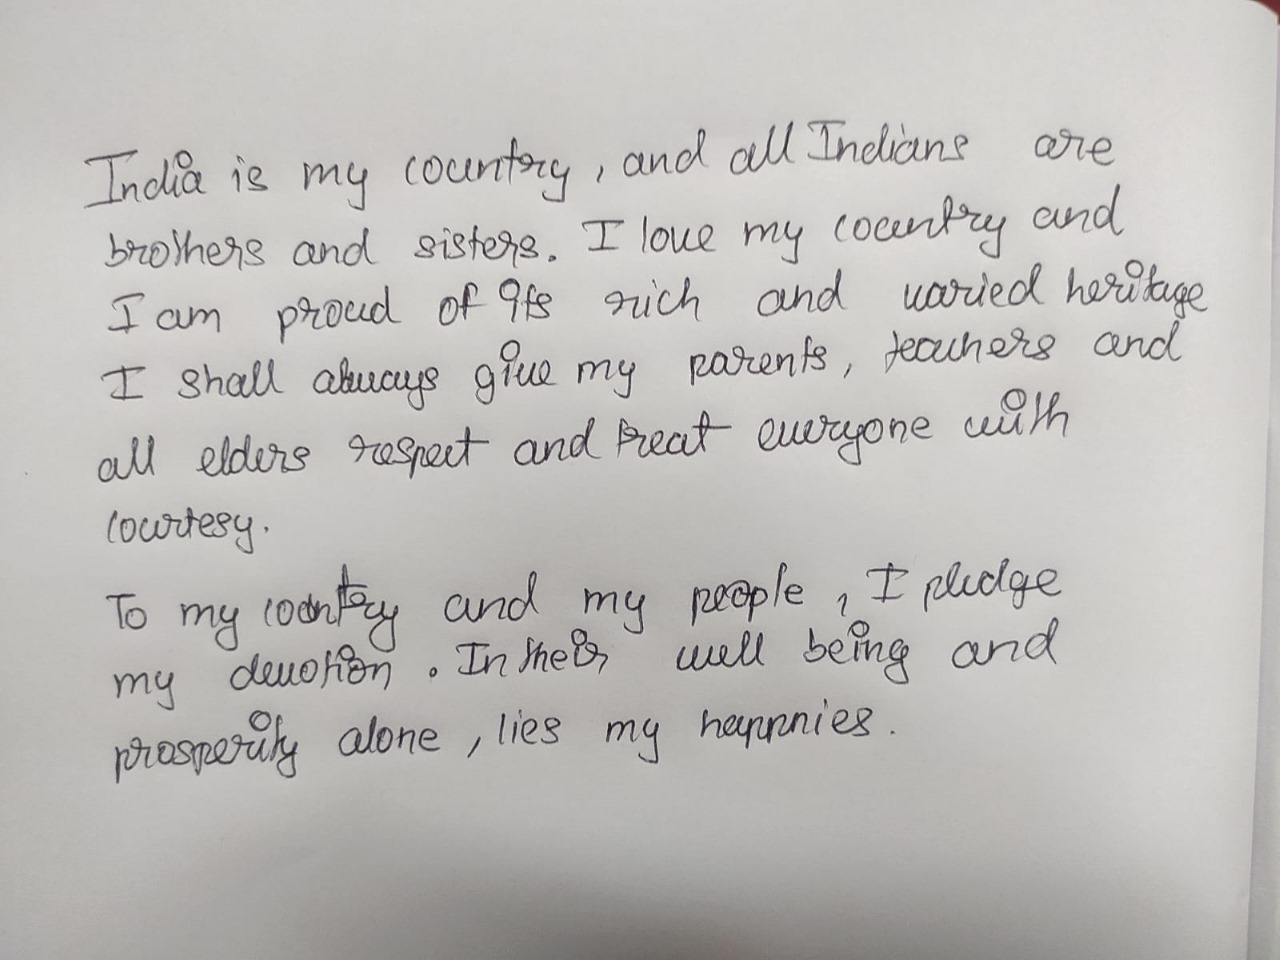 India is my country, and all Indians are
brothers and sisters. I love my country and
I am proud of its rich and varied heritage
I shall always give my parents, teachers and
all elders respect and treat everyone with
courtesy.
To my country and my people, I pledge
my devotion. In their well being and
prosperity alone, lies my happnies.